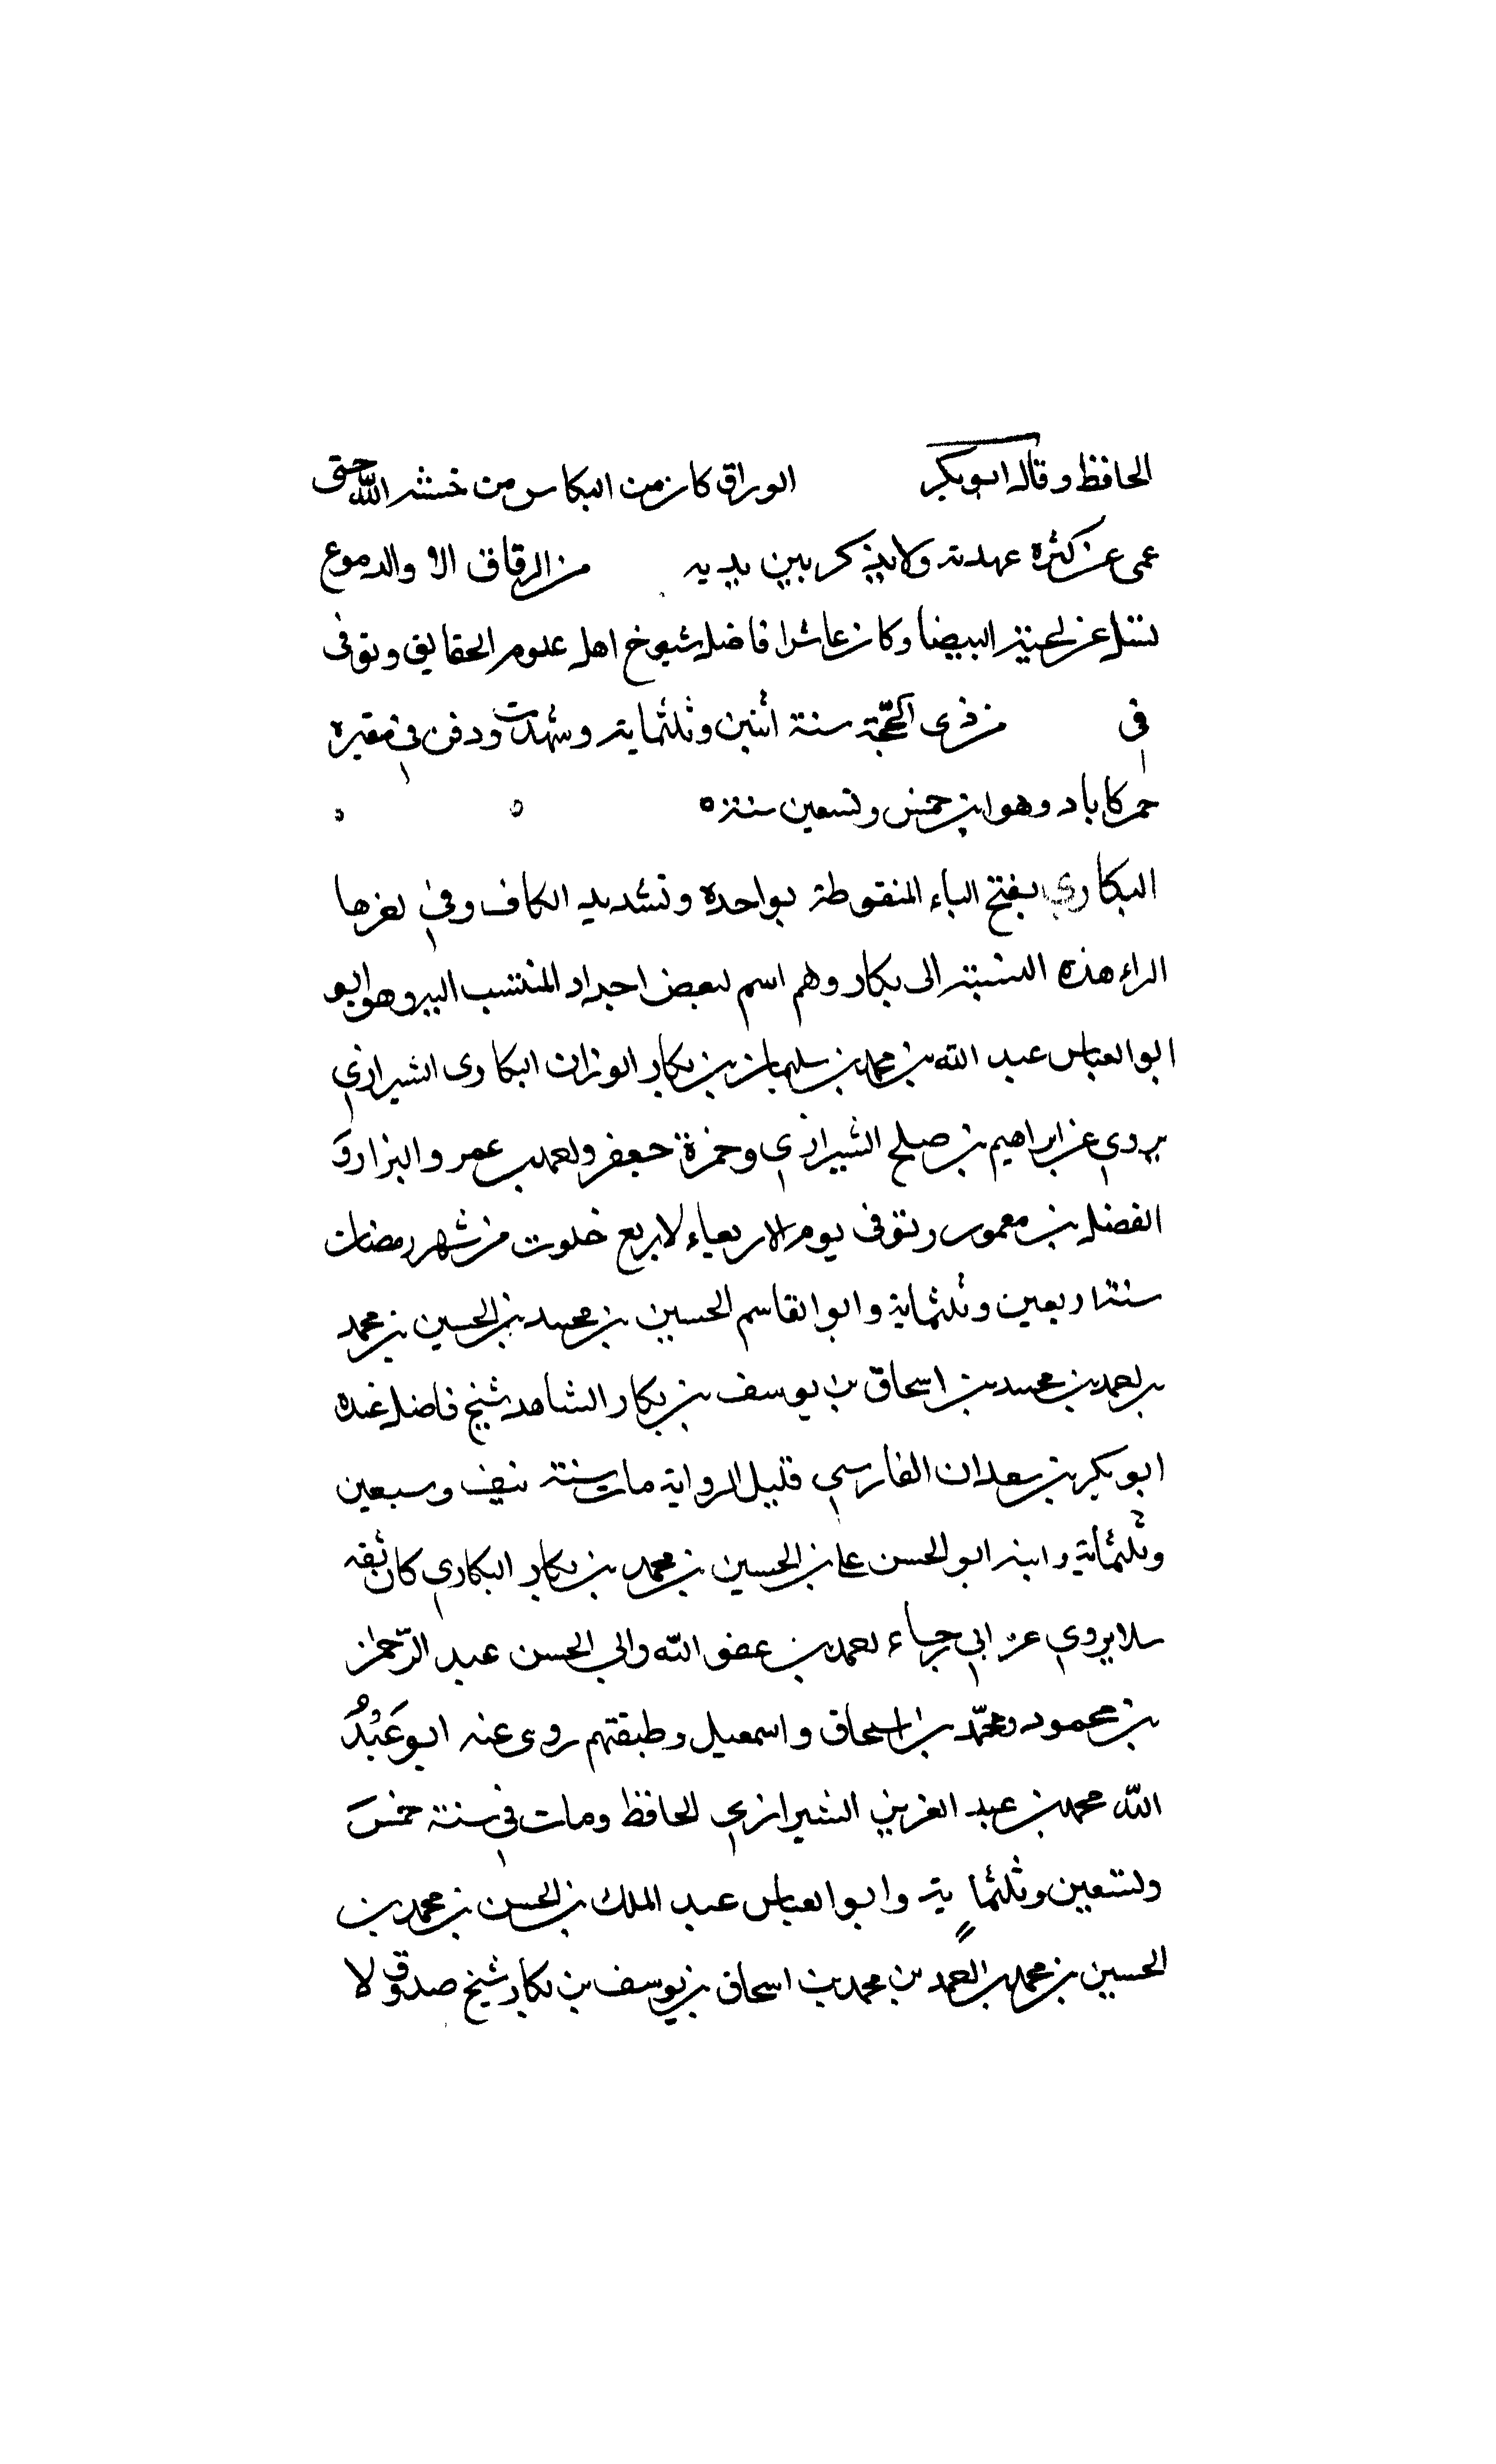 الحافظ وقال ابوبكر الوراق كان من البكاس من خشية الله حتى
عمى عن كثرة عهدته ولا يذكر بين يديه من الرقاق الا والدموع
تنتل عن لحيته البيضا وكان عاشرا فاضل شيوخ اهل علوم الحقايق وتوفى
فى من ذى الحجّة سنة اثنين وثلثماية وشهدت ودفن فى مقبرة
جركاباد وهو ابن خمس وتسعين سنة ه
البكاري بفتح الباء المنقوطة بواحدة وتشديد الكاف وفي اخرها
الراء هذه النسبة الى بكار وهم اسم لبعض اجداد المنتسب اليه وهو ابو
ابو العباس عبد الله بن محمد بن سليمان بن بكار الوزان البكارى الشيرازي
يروي عن ابراهيم بن صلح الشيرازي وحمزة جعفر واحمد بن عمر والبزار وَ
الفضل بن معمور وتوفى يوم الاربعاء لاربع خلوت من شهر رمضان
سنة اربعين وثلثماية وابو القاسم الحسين بن محمد بن الحسين بن محمد
بن احمد بن محمد بن اسحاق بن يوسف بن بكار الشاهد شيخ فاضل عنده
ابو بكر بن سعدان الفارسي قليل الرواية مات سنة نيف وسبعين
وثلثماية وابنه ابو الحسن على بن الحسين بن محمد بن بكار البكاري كان ثقة
يروي عن ابي رجاء احمد بن عفو الله وابي الحسن عبد الرّحمن
بن محمود ومحمّد بن اسحاق واسمعيل وطبقتهم روى عنه ابو عَبْدُ
الله محمد بن عبد العزيز الشيرازي الحافظ ومات في سنة خمسَ
وتسعين وثلثماية وابو العباس عبد الملك بن الحسن بن محمد بن
الحسين بن محمد بن احمد بن محمد بن اسحاق بن يوسف بن بكار شيخ صدوق لا